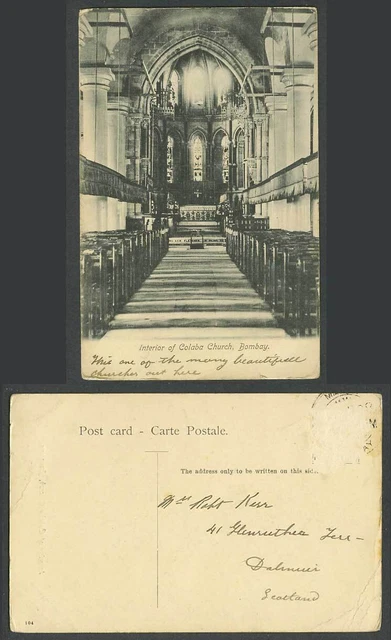 Interior of Colaba Church, Bombay.
This one of the many beautifull
churches out here
Post card - Carte Postale.
The address only to be written on this
Mrs Robt Kerr
41 Glenruther Terr-
Dalmuir
Scotland
104